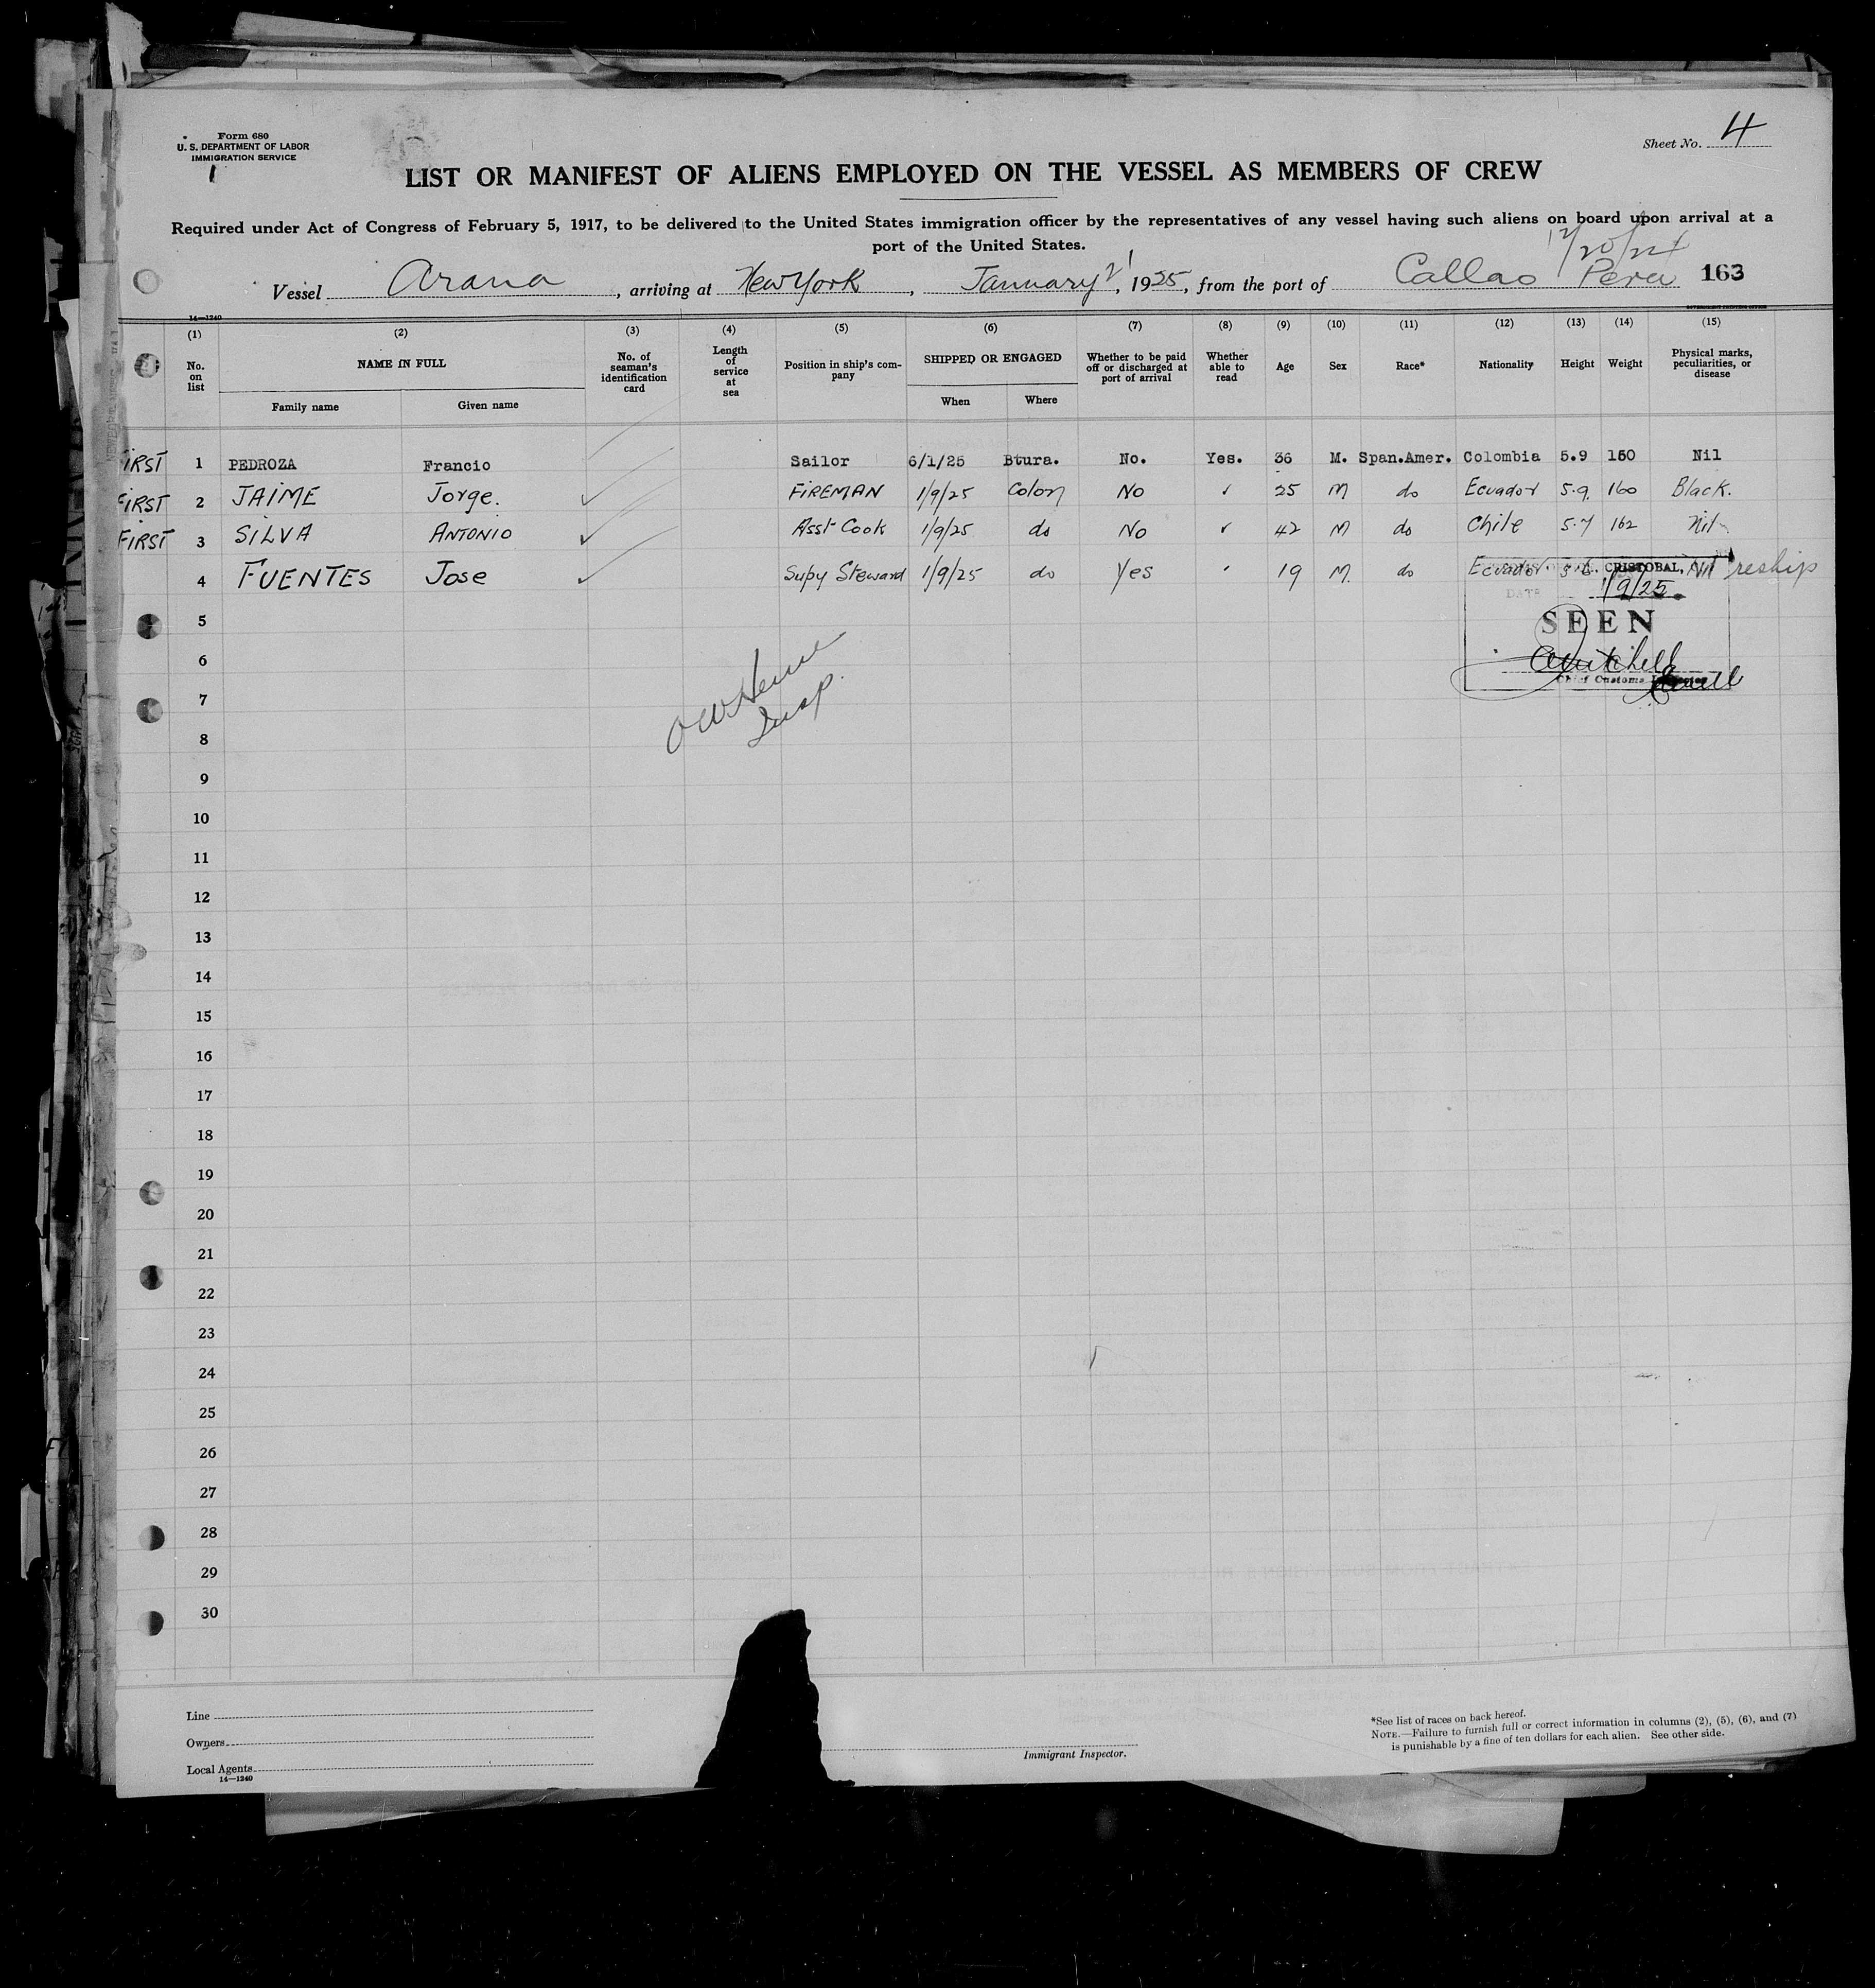 Form 680
U. S. DEPARTMENT OF LABOR
IMMIGRATION SERVICE
1
Sheet No. 4
LIST OR MANIFEST OF ALIENS EMPLOYED ON THE VESSEL AS MEMBERS OF CREW
Required under Act of Congress of February 5, 1917, to be delivered to the United States immigration officer by the representatives of any vessel having such aliens on board upon arrival at a
port of the United States.
12/20/24
Vessel Arana, arriving at New York, January 21, 1925, from the port of Callao Peru 163
14—1240
(1) (2) (3) (4) (5) (6) (7) (8) (9) (10) (11) (12) (13) (14) (15)
No. on list NAME IN FULL No. of seaman's identification card Length of service at sea Position in ship's company SHIPPED OR ENGAGED Whether to be paid off or discharged at port of arrival Whether able to read Age Sex Race* Nationality Height Weight Physical marks, peculiarities, or disease
Family name Given name When Where
FIRST 1 PEDROZA Francio Sailor 6/1/25 Btura. No. Yes. 36 M. Span.Amer. Colombia 5.9 150 Nil
FIRST 2 JAIME Jorge. FIREMAN 1/9/25 Colon No ✓ 25 M do Ecuador 5.9. 160 Black.
FIRST 3 SILVA ANTONIO Asst Cook 1/9/25 do No ✓ 42 M do Chile 5.7 162 Nil
4 FUENTES Jose Supy Steward 1/9/25 do Yes 19 M. do Ecuador Nil reship
CRISTOBAL, C.
DATE 1/9/25
SEEN
Chief Customs
5
6
7
Insp.
8
9
10
11
12
13
14
15
16
17
18
19
20
21
22
23
24
25
26
27
28
29
30
Line
Owners
Local Agents
14—1240
Immigrant Inspector.
*See list of races on back hereof.
NOTE.—Failure to furnish full or correct information in columns (2), (5), (6), and (7)
is punishable by a fine of ten dollars for each alien. See other side.